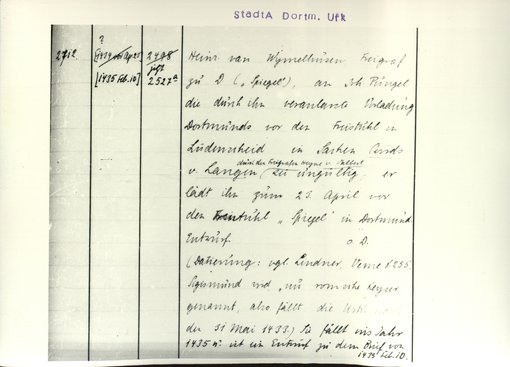 StadtA Dortm. Urk
?
2712
[1435 Feb. 10]
2498
jetzt
2527a
Heinr. van Wymelhusen Freigraf
zu D („Spiegel"), an Joh Püngel
die durch ihn veranlasste Vorladung
Dortmunds vor den Freistuhl in
Lüdenscheid in Sachen Conrds
durch den Freigrafen Heyne v. Valbert
v. Langen sei ungültig; er
lädt ihn zum 23. April vor
den Freistuhl „Spiegel" in Dortmund
Entwurf. o D.
(Datierung: vgl. Lindner, Veme S 255
Sigismund wird „nu romische Keyser
genannt, also fällt die Urk. nach
den 31 Mai 1433.) Sie fällt ins Jahr
1435 u. ist ein Entwurf zu dem Brief von
1435 Feb. 10.